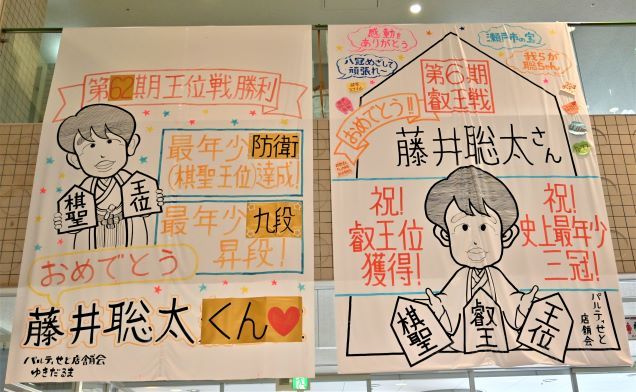 第62棋月王位戦勝利
最年少防衛
(棋聖王位)達成!
最年少九段
昇段!
棋聖
王位
おめでとう
藤井聡太くん
パルティせと店舗会
ゆきだるま
感動を
ありがとう
八冠めざして
頑張れ〜
瀬戸市の宝
我らが
聡ちゃん
第6期
叡王戦
おめでとう!!
藤井聡太さん
祝!
叡王位
獲得!
祝!
史上最年少
三冠!
棋聖
叡王
王位
パルティせと
店舗会